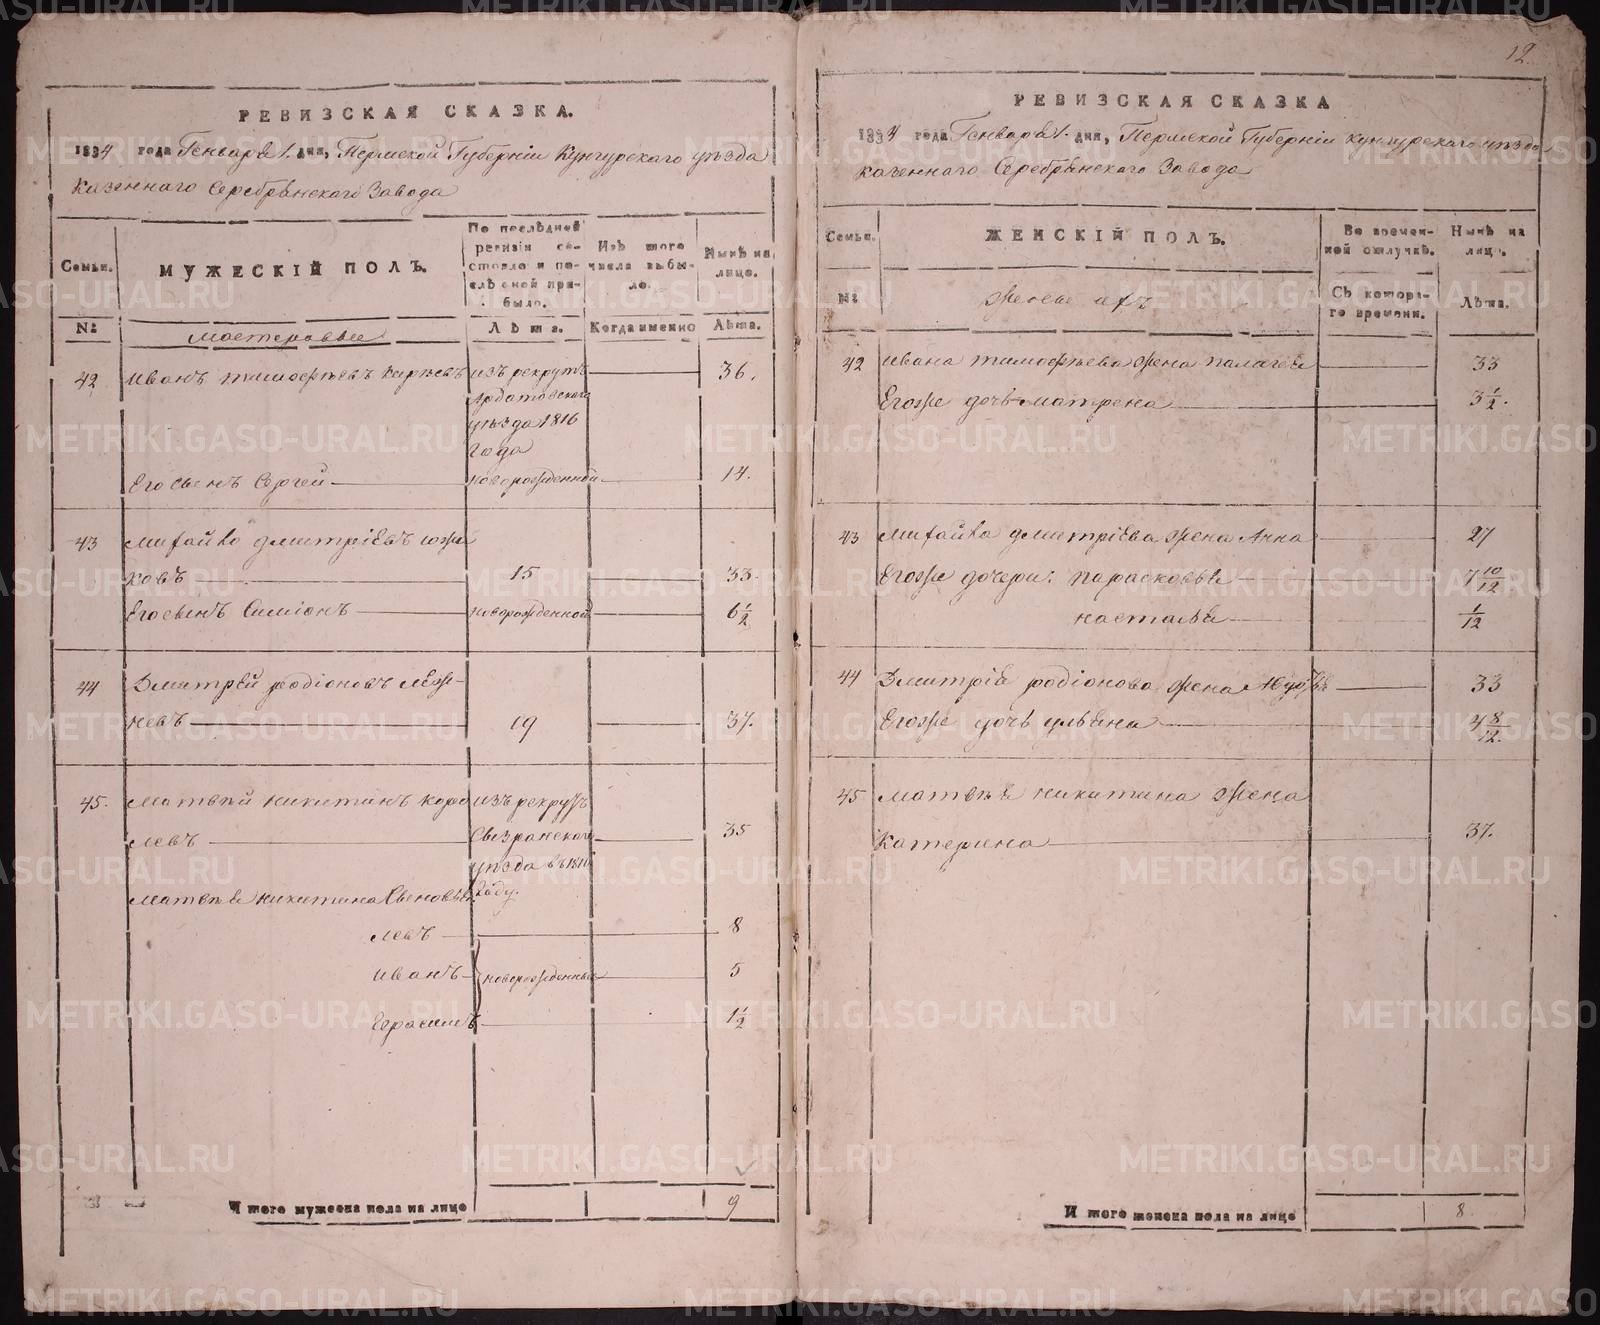 РЕВИЗСКАЯ СКАЗКА.
1834 года Генваря 1. дня, Пермской Губерніи Кунгурского уѣзда
казеннаго Серебрянскаго Завода
Семьи.
МУЖЕСКІЙ ПОЛЪ.
По послѣдней ревизіи состояло и послѣ оной прибыло.
Изъ того числа выбыло.
Нынѣ на лицо.
№
Мастеровые
Лѣта.
Когда именно
Лѣта.
42 Иванъ Тимофѣевъ изъ рекрутъ 36.
Ардатовскаго
уѣзда 1816
года
Его сынъ Сергей новорожденной 14.
43 Михайло Дмитріевъ
ховъ 15 33.
Его сынъ Симіонъ новорожденной 6 1/2
44 Дмитрей Родіоновъ
невъ 19 37.
45. Матвѣй Никитинъ Коро изъ рекрутъ
левъ Сызранскаго 35
уѣзда въ 181
году.
Матвѣя Никитина Сыновья
Левъ 8
Иванъ новорожденные 5
Герасимъ 1 1/2
Итого мужеска пола на лицо 9
12.
РЕВИЗСКАЯ СКАЗКА
1834 года Генваря 1. дня, Пермской Губерніи Кунгурскаго уѣзда
казеннаго Серебрянскаго Завода
Семьи.
ЖЕНСКІЙ ПОЛЪ.
Во временной отлучкѣ.
Нынѣ на лицо.
№
Жены ихъ
Съ котораго времени.
Лѣта.
42 Ивана Тимофѣева жена Палагея 33
Егоже дочь Матрена 3 1/2.
43 Михайла Дмитріева жена Анна 27
Егоже дочери: Парасковья 7 10/12
Насталья 1/12
44 Дмитрія Родіонова жена 33
Егоже дочь Ульяна 4 8/12.
45 Матвѣя Никитина жена
Катерина 37.
Итого женска пола на лицо 8
METRIKI.GASO-URAL.RU